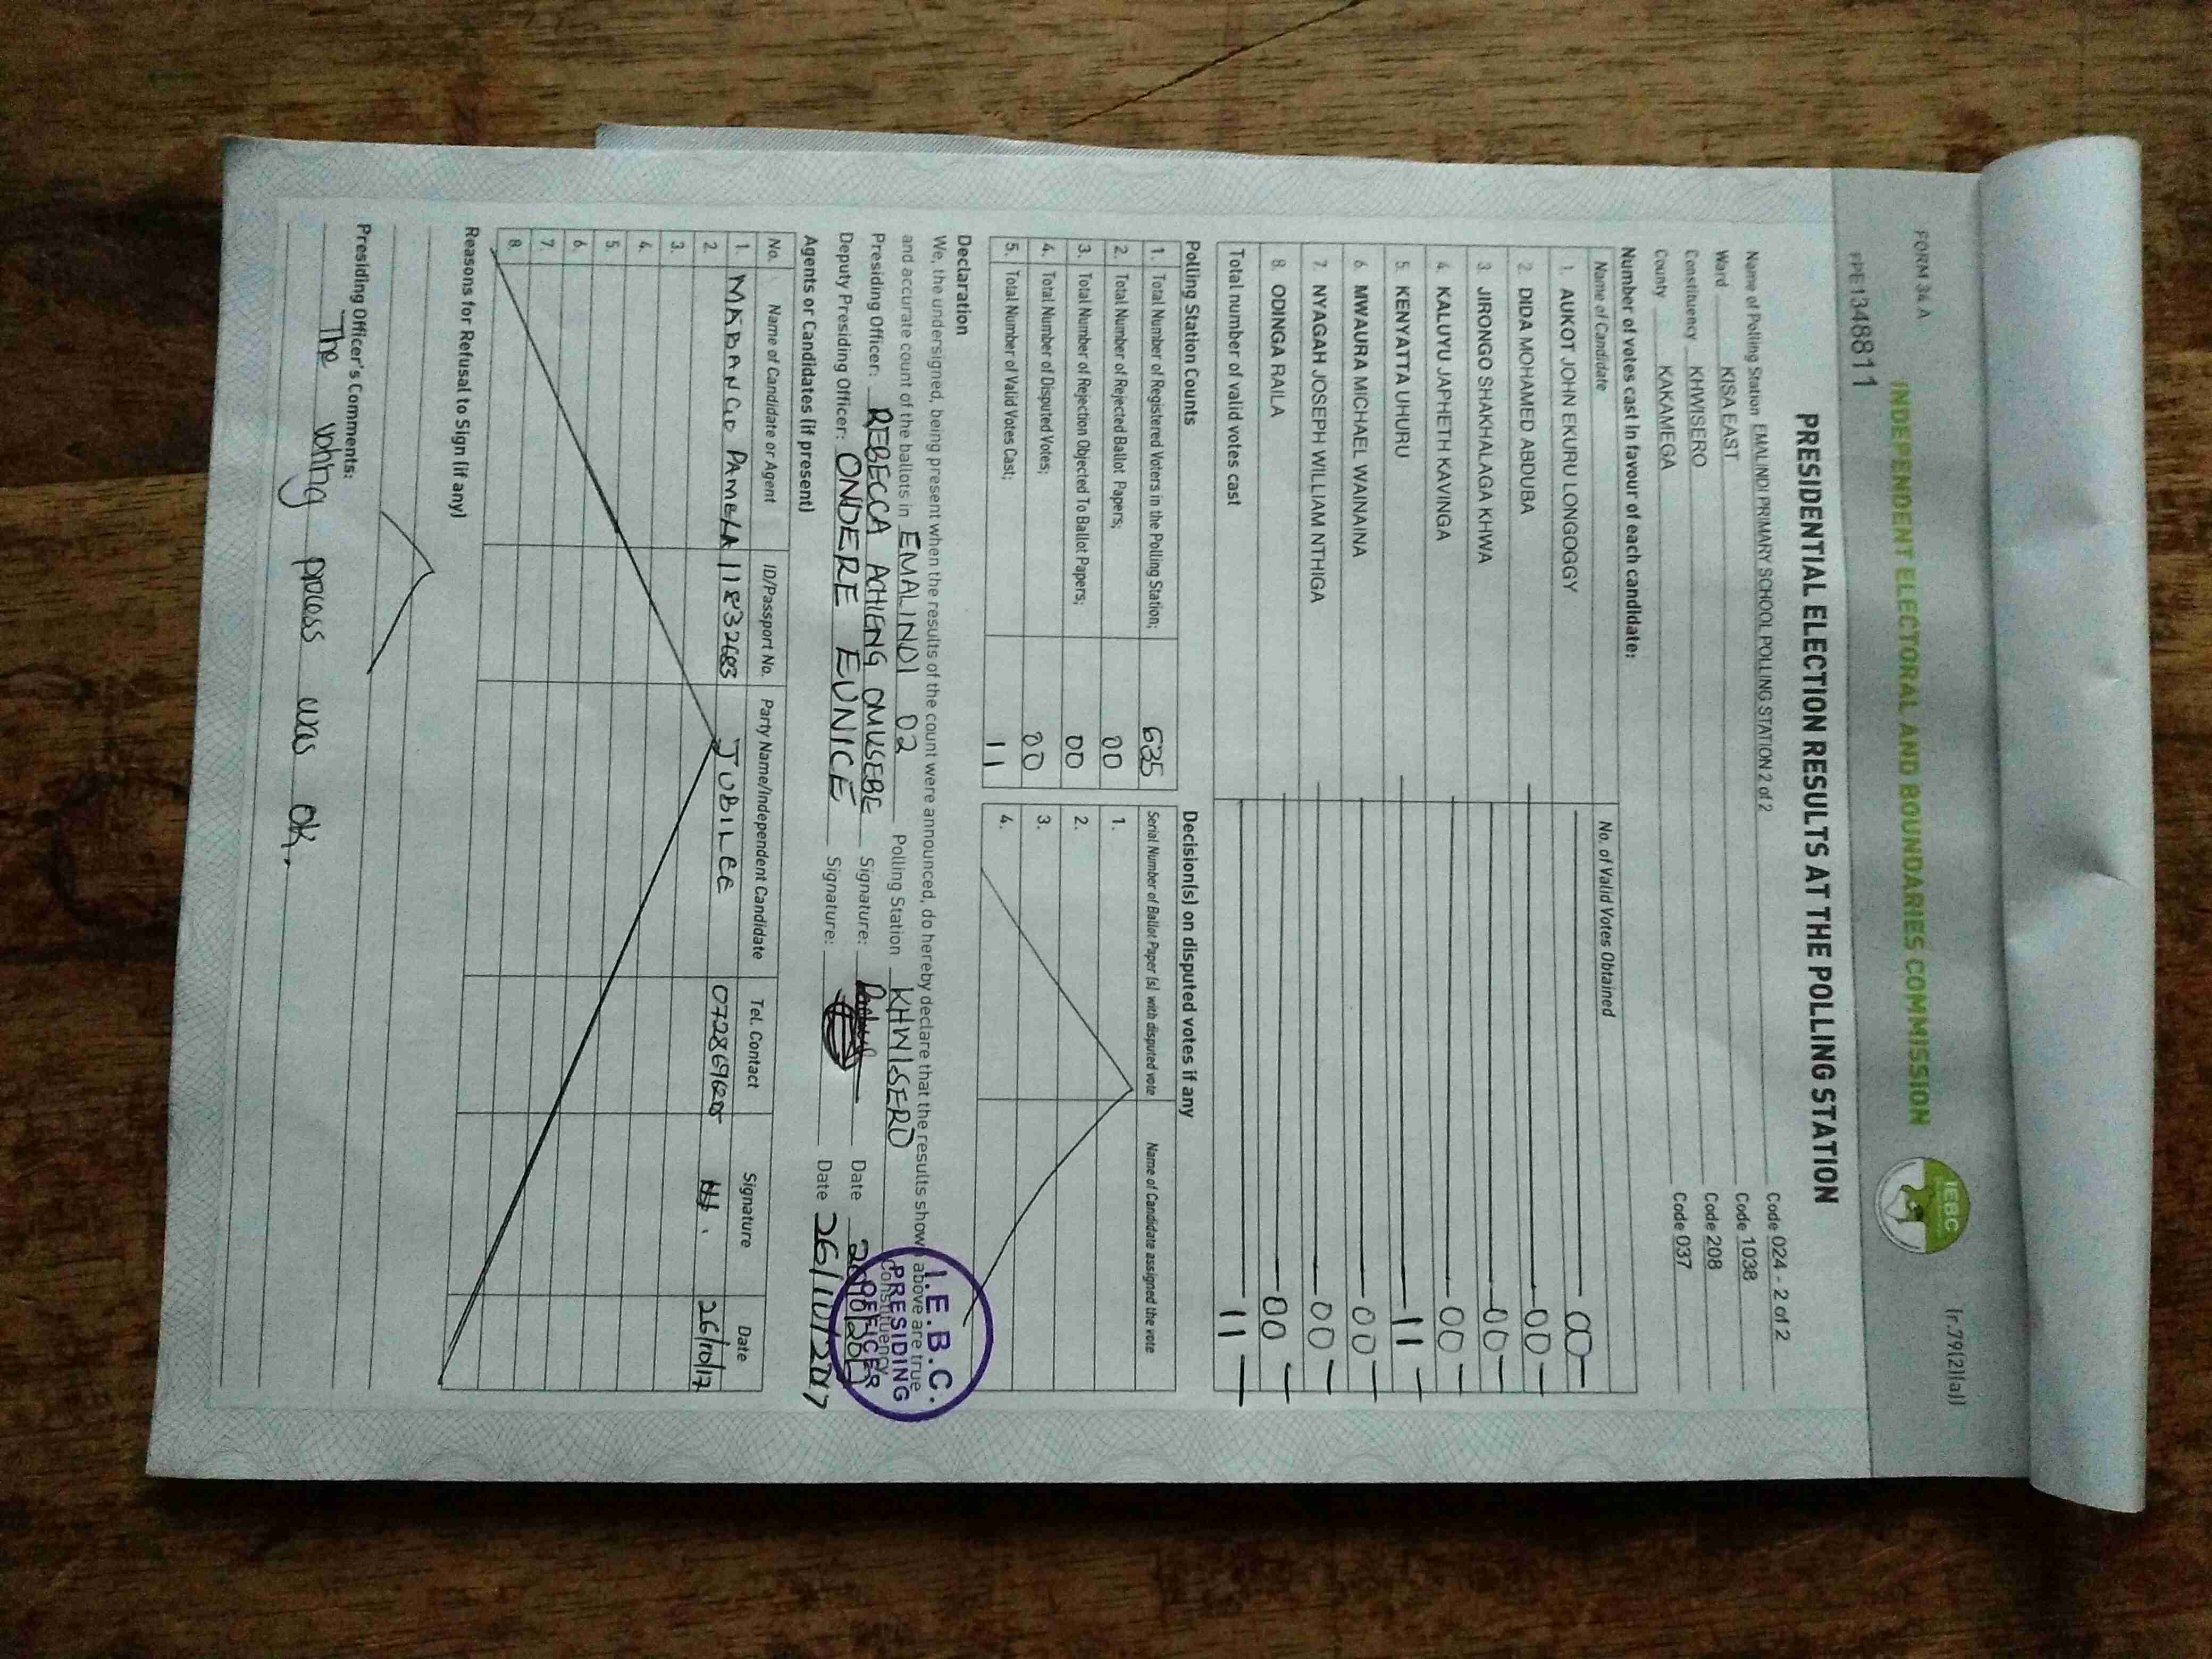 FORM 34 A
(r.79(2)(a))
INDEPENDENT ELECTORAL AND BOUNDARIES COMMISSION
IEBC
PPE1348811
PRESIDENTIAL ELECTION RESULTS AT THE POLLING STATION
Name of Polling Station EMALINDI PRIMARY SCHOOL POLLING STATION 2 of 2 Code 024 - 2 of 2
Ward KISA EAST Code 1038
Constituency KHWISERO Code 208
County KAKAMEGA Code 037
Number of votes cast in favour of each candidate:
Name of Candidate No. of Valid Votes Obtained
1. AUKOT JOHN EKURU LONGOGGY 00
2. DIDA MOHAMED ABDUBA 00
3. JIRONGO SHAKHALAGA KHWA 00
4. KALUYU JAPHETH KAVINGA 00
5. KENYATTA UHURU 11
6. MWAURA MICHAEL WAINAINA 00
7. NYAGAH JOSEPH WILLIAM NTHIGA 00
8. ODINGA RAILA 00
Total number of valid votes cast 11
Polling Station Counts
1. Total Number of Registered Voters in the Polling Station; 635
2. Total Number of Rejected Ballot Papers; 00
3. Total Number of Rejection Objected To Ballot Papers; 00
4. Total Number of Disputed Votes; 00
5. Total Number of Valid Votes Cast; 11
Decision(s) on disputed votes if any
Serial Number of Ballot Paper (s) with disputed vote Name of Candidate assigned the vote
1.
2.
3.
4.
Declaration
We, the undersigned, being present when the results of the count were announced, do hereby declare that the results shown above are true
and accurate count of the ballots in EMALINDI 02 Polling Station KHWISERO Constituency
Presiding Officer: REBECCA ACHIENG OMUSEBE Signature: Date
Deputy Presiding Officer: ONDERE EUNICE Signature: Date 26/10/2017
I.E.B.C.
PRESIDING
OFFICER
Agents or Candidates (if present)
No. Name of Candidate or Agent ID/Passport No. Party Name/Independent Candidate Tel. Contact Signature Date
1. MABANGO PAMELA 11832683 JUBILEE 26/10/17
2.
3.
4.
5.
6.
7.
8.
Reasons for Refusal to Sign (if any)
Presiding Officer's Comments:
The voting process was OK.